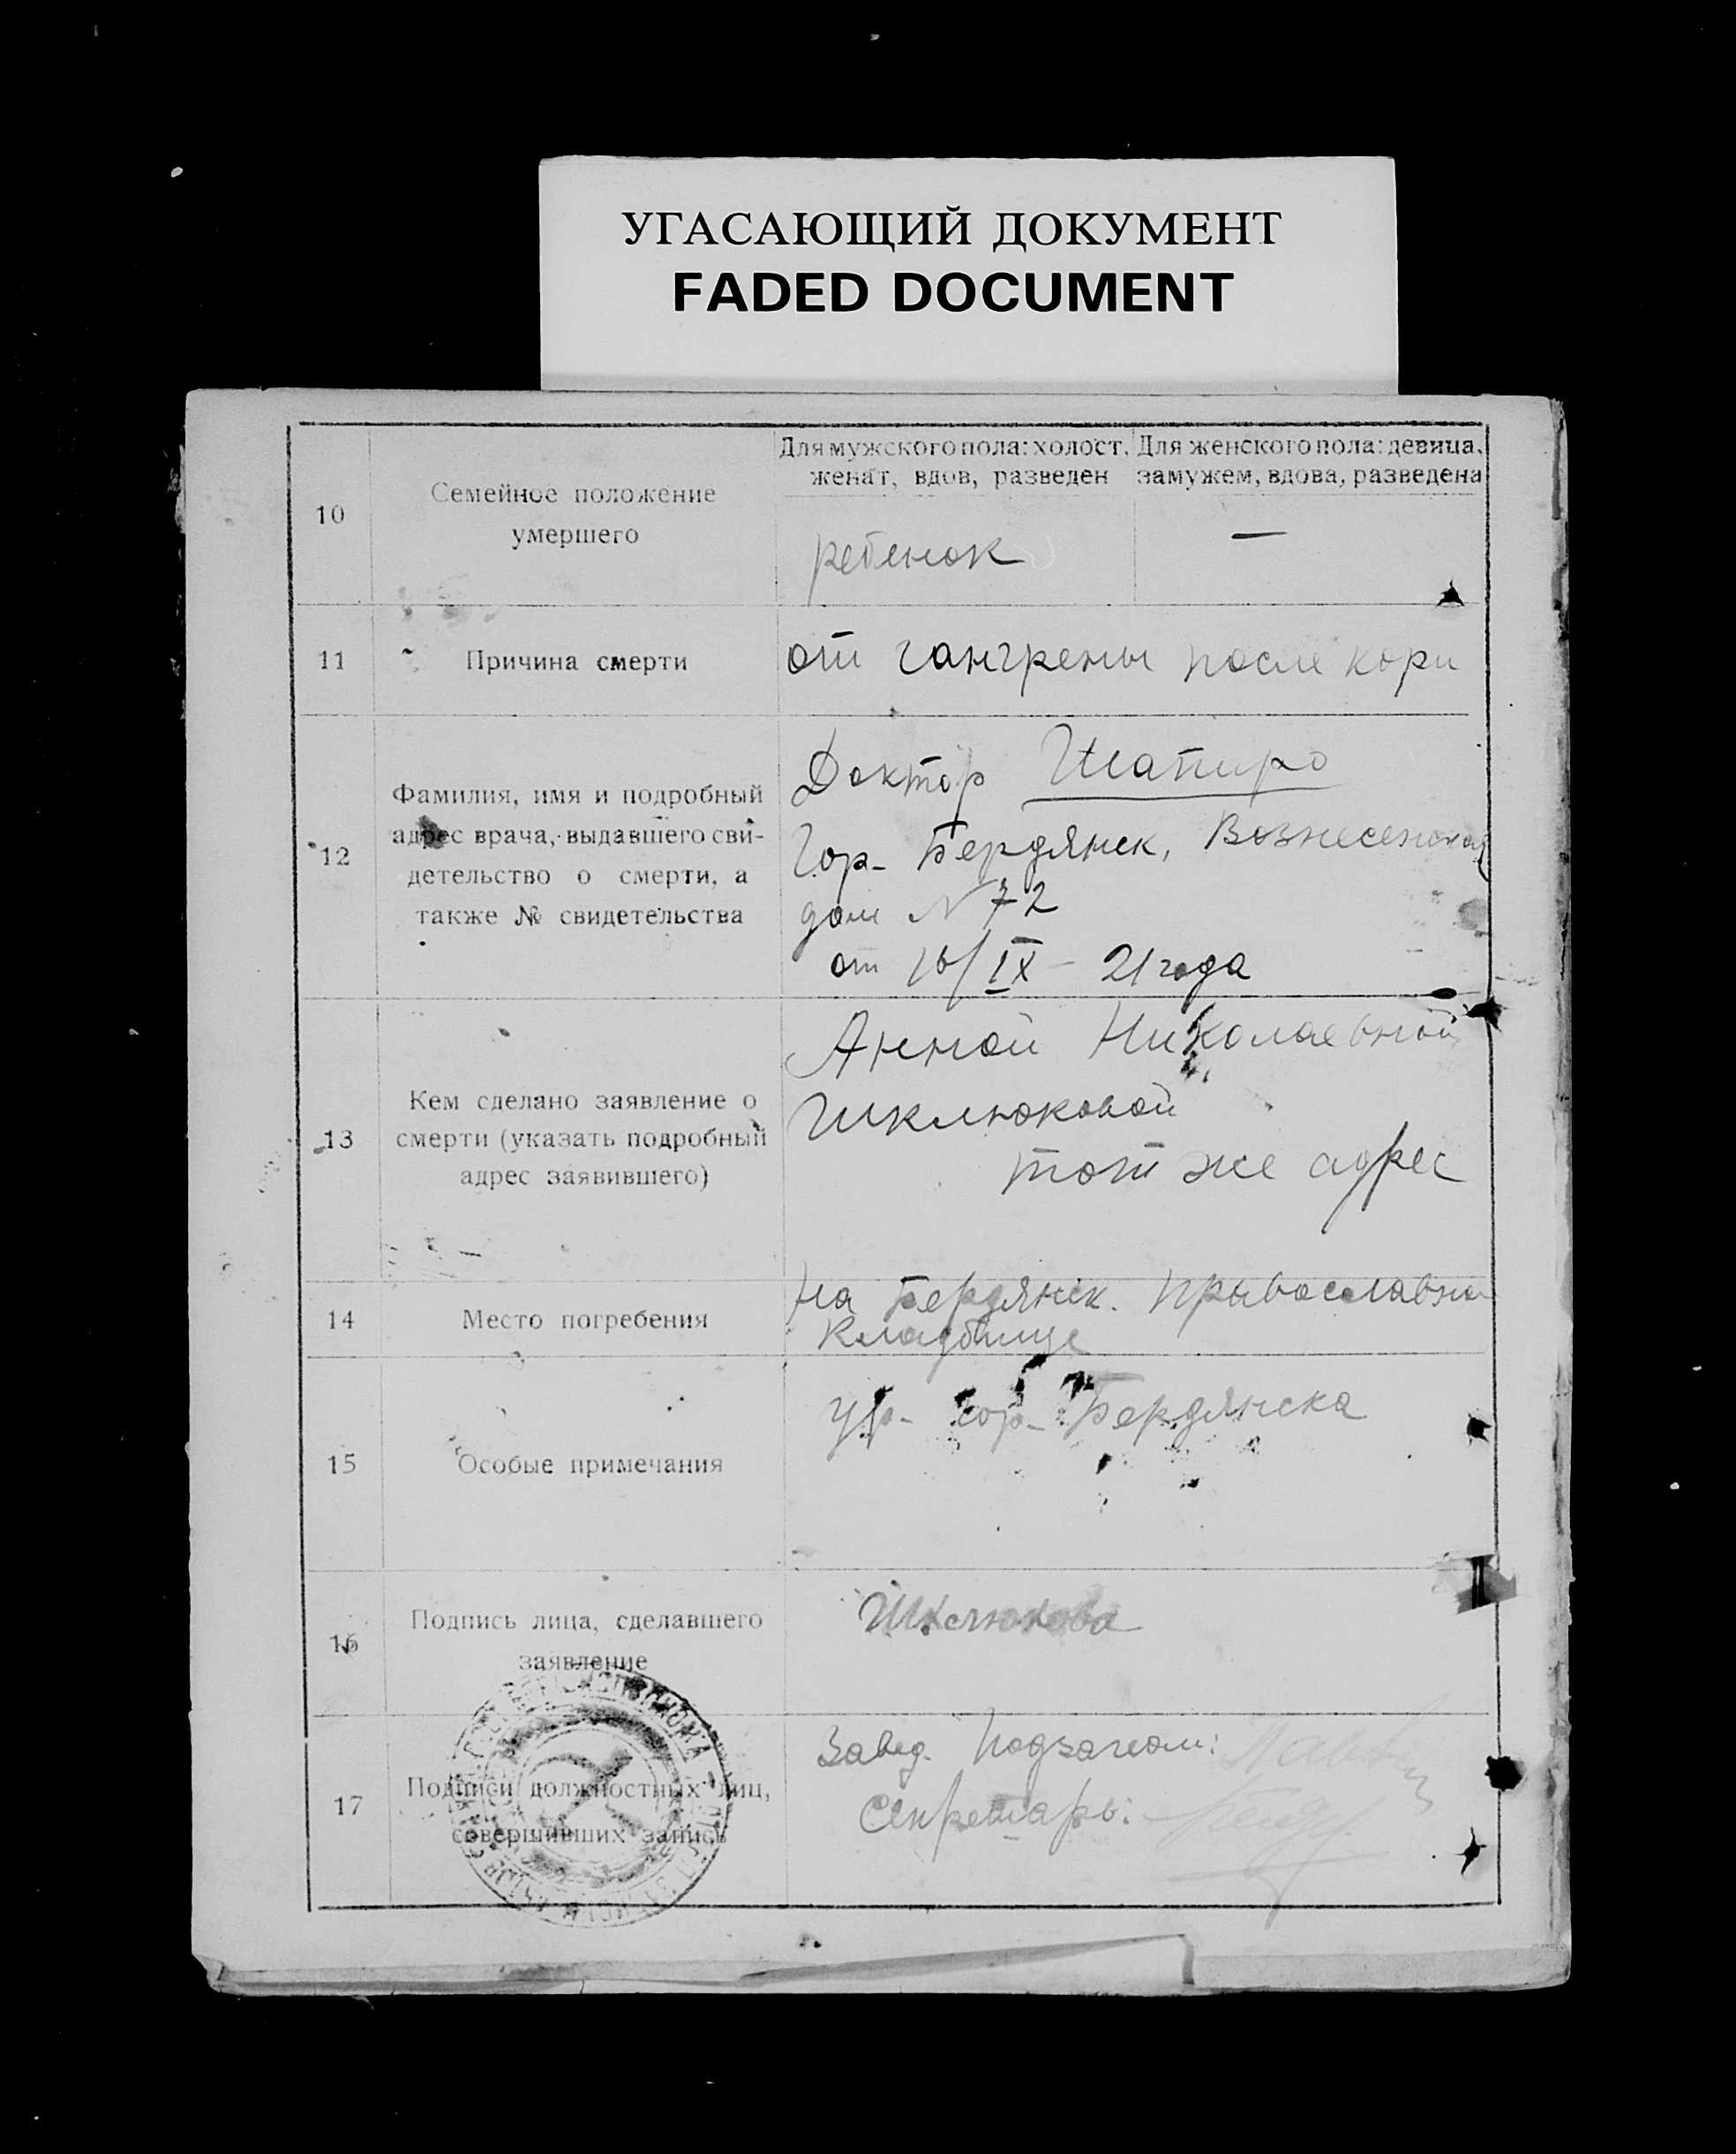 УГАСАЮЩИЙ ДОКУМЕНТ
FADED DOCUMENT
10
Семейное положение
умершего
Для мужского пола: холост,
женат, вдов, разведен
Для женского пола: девица,
замужем, вдова, разведена
ребенок
—
11
Причина смерти
от гангрены после кори
12
Фамилия, имя и подробный
адрес врача, выдавшего сви-
детельство о смерти, а
также № свидетельства
Доктор Шапиро
Гор- Бердянск, Вознесенская
дом N 72
от 16/IX - 21 года
13
Кем сделано заявление о
смерти (указать подробный
адрес заявившего)
Анной Николаевной
Шклюковой
тот же адрес
14
Место погребения
на Бердянск. православном
кладбище
15
Особые примечания
гор- Бердянска
16
Подпись лица, сделавшего
заявление
Шклюкова
17
Подписи должностных лиц,
совершивших запись
Завед. Подзагсом:
Секретарь: